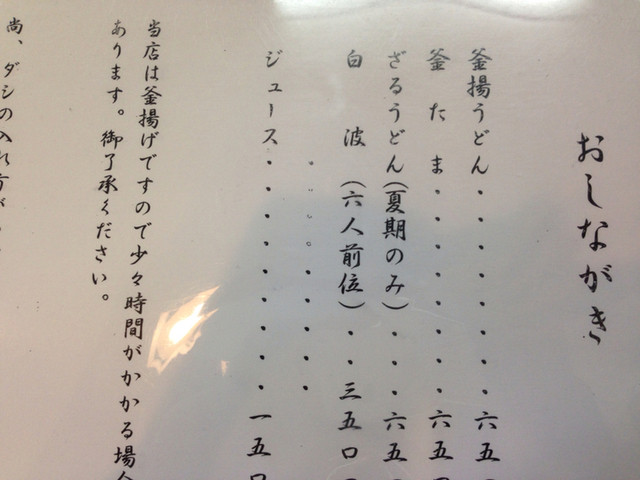 おしながき
釜揚うどん・・・・・・・・六五
釜たま・・・・・・・・六五
ざるうどん(夏期のみ)・・・六五
白波(六人前位)・・三五〇
ジュース・・・・・・・・・一五〇
当店は釜揚げですので少々時間がかかる場合
あります。御了承ください。
尚、ダシの入れ方が